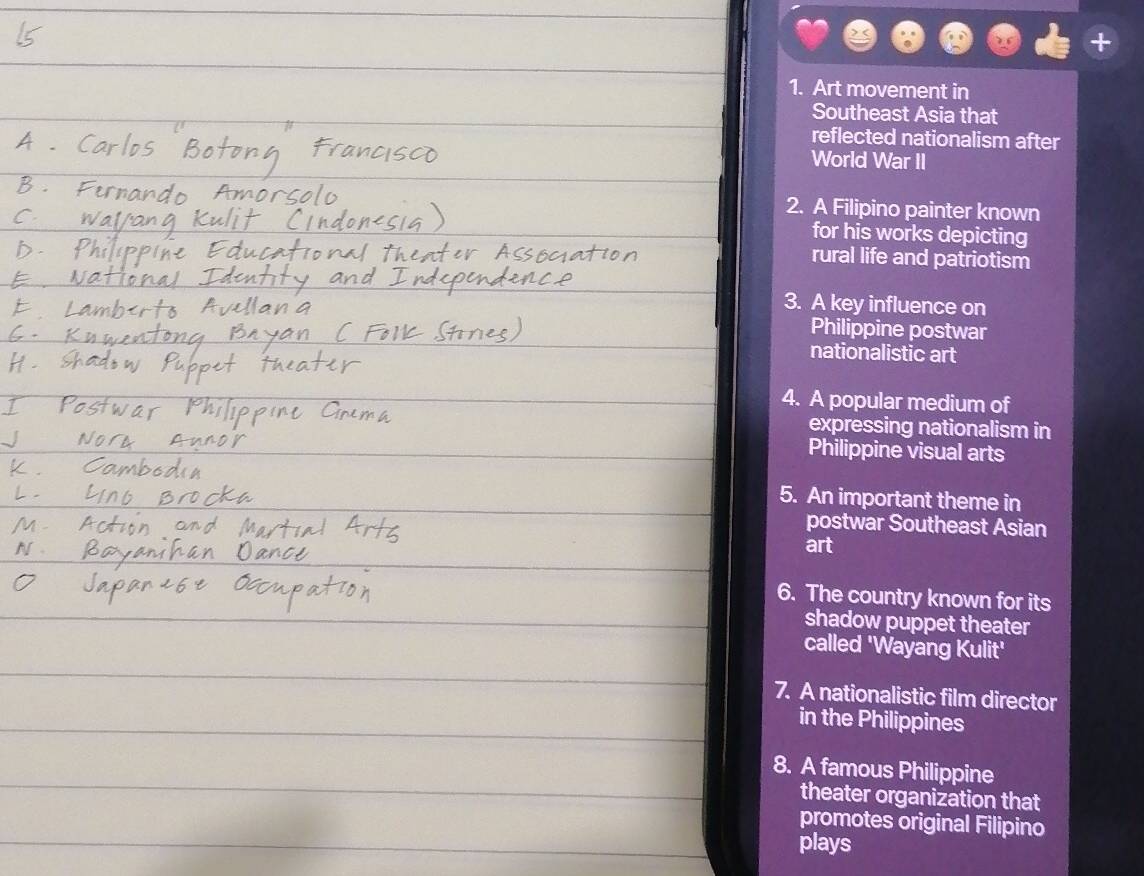 15
A. Carlos "Botong" Francisco
B. Fernando Amorsolo
C. Wayang Kulit (Indonesia)
D. Philippine Educational Theater Association
E. National Identity and Independence
F. Lamberto Avellana
G. Kuwentong Bayan (Folk Stories)
H. Shadow Puppet Theater
I Postwar Philippine Cinema
J Nora Aunor
K. Cambodia
L. Lino Brocka
M. Action and Martial Arts
N. Bayanihan Dance
O Japanese Occupation
1. Art movement in
Southeast Asia that
reflected nationalism after
World War II
2. A Filipino painter known
for his works depicting
rural life and patriotism
3. A key influence on
Philippine postwar
nationalistic art
4. A popular medium of
expressing nationalism in
Philippine visual arts
5. An important theme in
postwar Southeast Asian
art
6. The country known for its
shadow puppet theater
called 'Wayang Kulit'
7. A nationalistic film director
in the Philippines
8. A famous Philippine
theater organization that
promotes original Filipino
plays